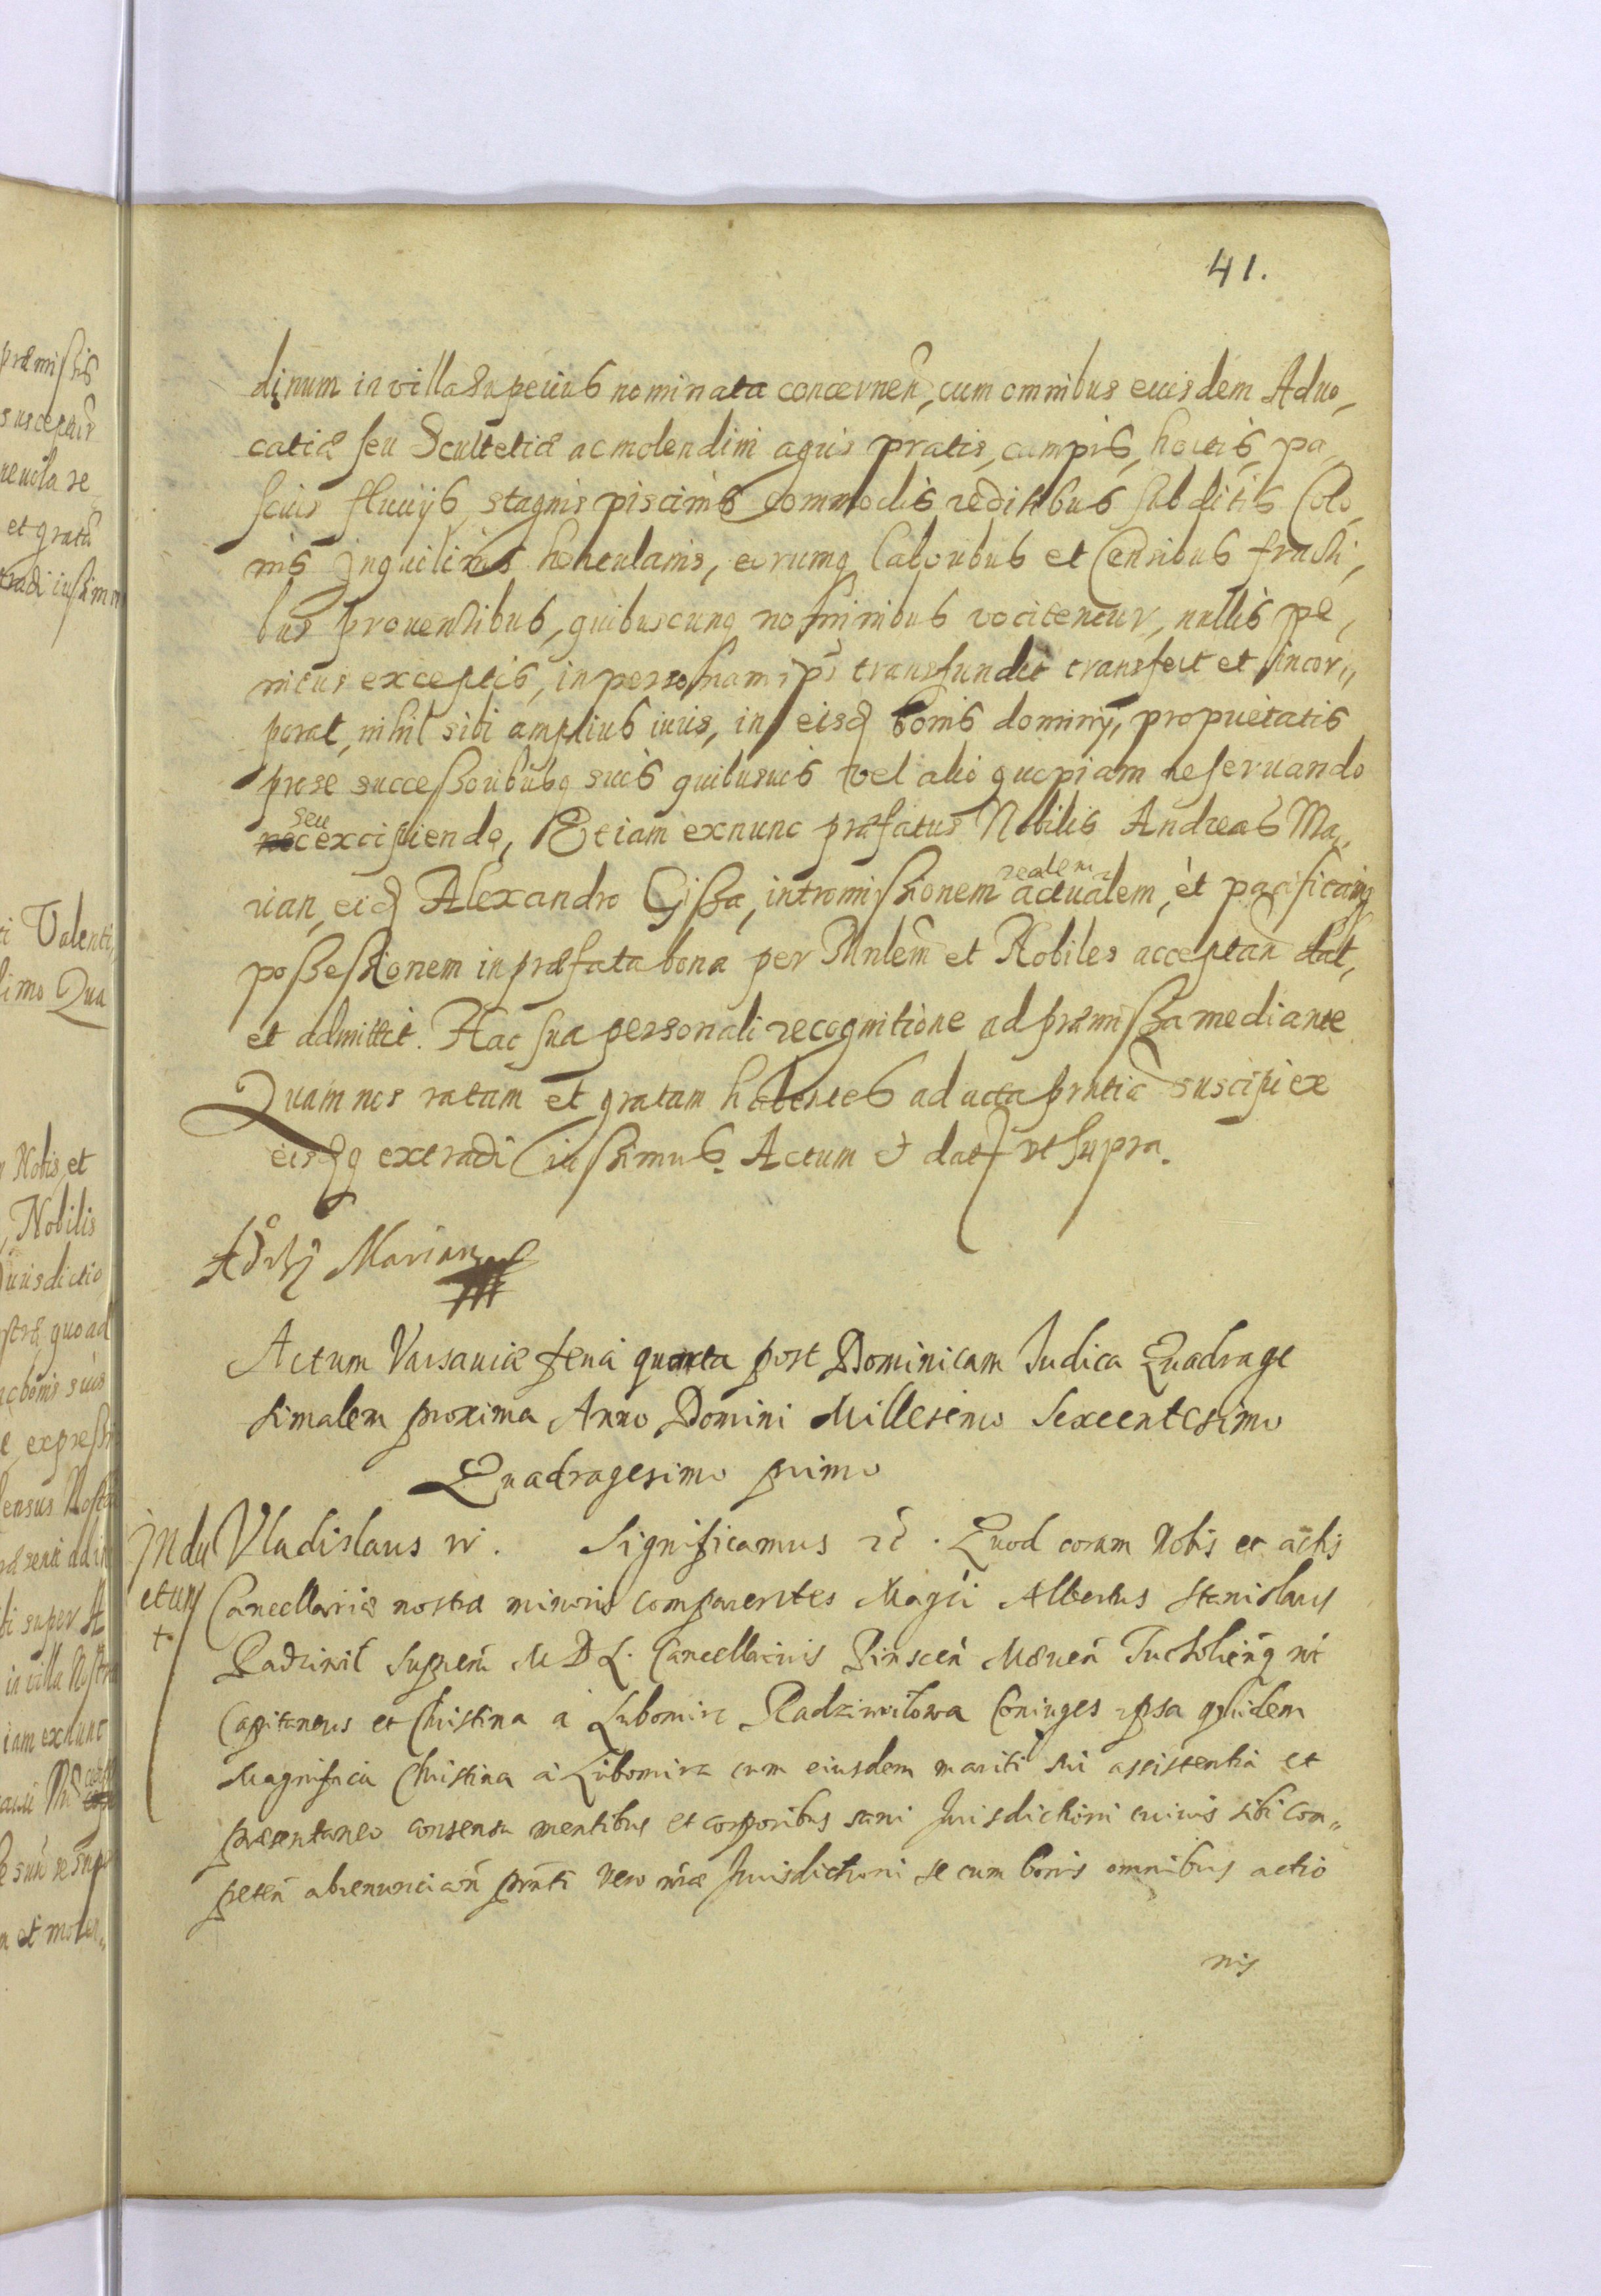 41.
dinum in villa superius nominata concernen, cum omnibus eiusdem Aduo,
catiæ seu Scultetiæ ac molendini agris pratis, campis, hortis, pa,
scuis fluuijs, stagnis piscinis commodis reditibus subditis Colo,
nis Inquilinis hortulanis, eorumq laboribus et Censibus fructi,
bus prouentibus, quibuscunq nominibus vocitentur, nullis pe,
nitus exceptis, in personam ips transfundit transfert et incor,,
porat, nihil sibi amplius iuris, in eisd bonis dominij, proprietatis
pro se successoribusq suis quibusuis vel alio quopiam reseruando
seu
excipiendo, Etiam ex nunc præfatus Nobilis Andreas Ma,
realem
rian, eid Alexandro Gissa, intromissionem actualem, et pacificamq
possessionem in præfata bona per Mnlem et Nobiles acceptan dat,
et admittit. Hac sua personali recognitione ad præmissa mediante
Quam nos ratam et gratam habentes ad acta pnti suscipi ex
eisdq extradi iussimus. Actum et dat ut supra.
Marian
Actum Varsauiæ feria quarta post Dominicam Iudica Quadrage
simalem proxima Anno Domini Millesimo Sexcentesimo
Quadragesimo primo
Indu
ctum
+
Vladislaus IV. Significamus &c. Quod coram Nobis et actis
Cancellariæ nostræ minoris comparentes Magci Albertus Stanislaus
Radziwil Suprem M D L. Cancellarius Pinscen Meuen Tucholienq nr
Capitaneus et Christina a Lubomirz Radziwilowa Coniuges ipsa quidem
Magnifica Christina a Lubomirz cum eiusdem mariti sui assistentia et
præsentaneo consensu mentibus et corporibus sani Iurisdictioni cuiuis sibi com,,
peten abrenuncian pnti vero nræ Iurisdictioni se cum bonis omnibus actio
nis
præmissis
suscepim
et gratu
tradi iussim
Valenti,
simo Qua
Nobis, et
Nobilis
Iurisdictio
stræ quoad
bonis suis
expressi
sensus Nost
super A
in villa Nostra
iam ex nunc
et molen,,